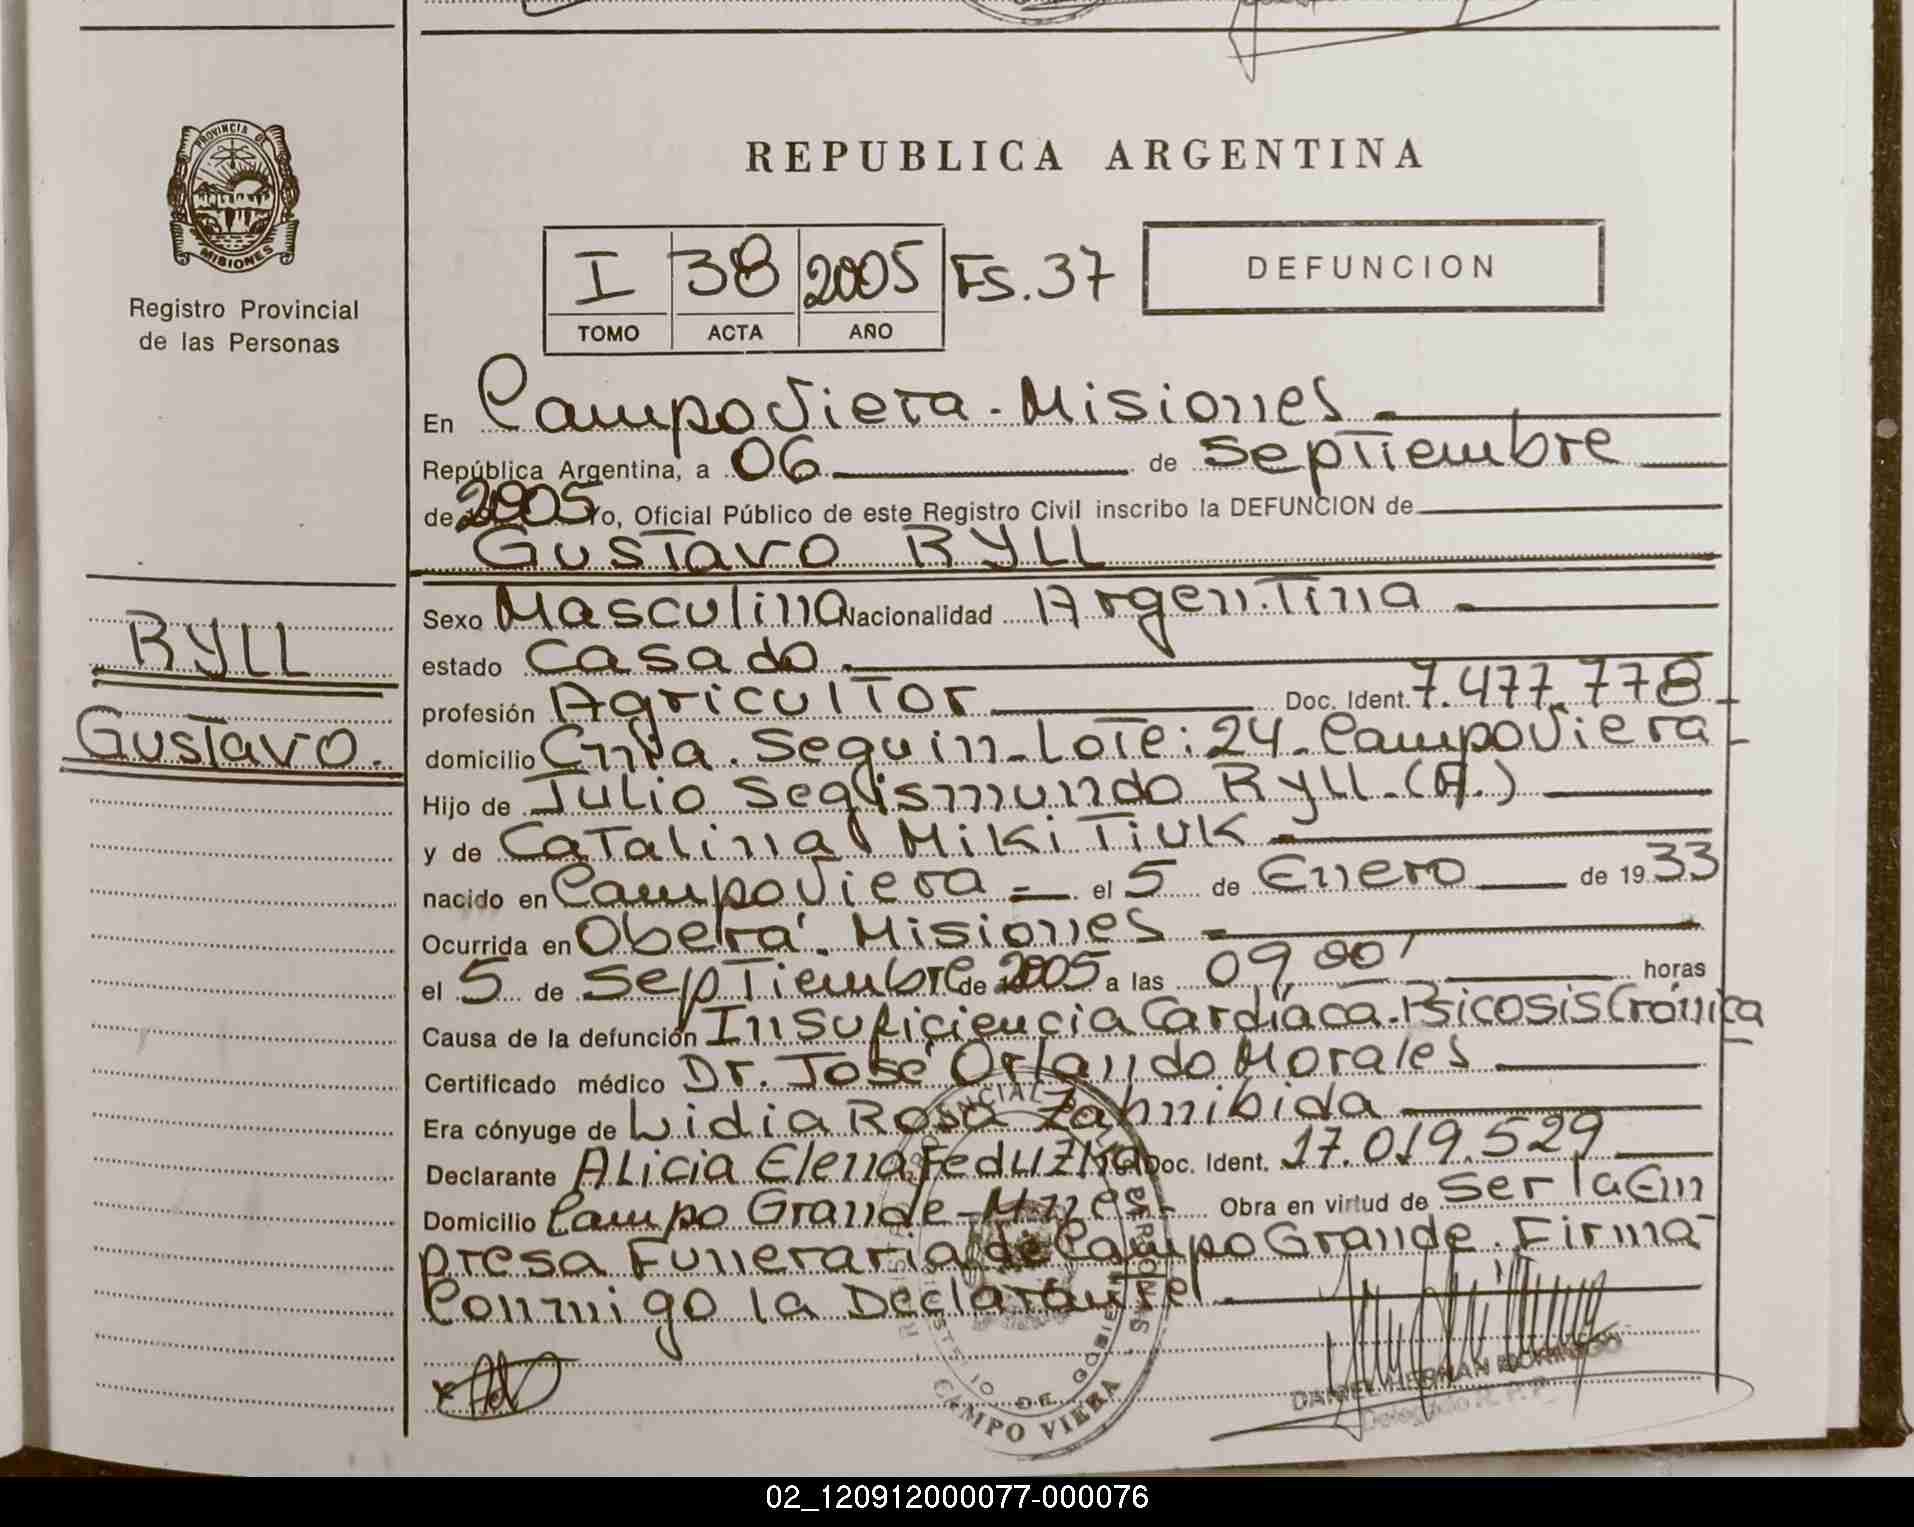 REPUBLICA ARGENTINA
PROVINCIA DE
MISIONES
Registro Provincial
de las Personas
I 38 2005 Fs. 37
TOMO ACTA AÑO
DEFUNCION
En Campo Viera - Misiones
República Argentina, a 06 de Septiembre
de 2005 Yo, Oficial Público de este Registro Civil inscribo la DEFUNCION de
Gustavo RYLL
RYLL
Gustavo.
Sexo Masculino Nacionalidad Argentina
estado Casado
profesión Agricultor Doc. Ident. 7.477.778
domicilio Cnia. Seguin - Lote: 24 - Campo Viera
Hijo de Julio Segismundo Ryll - (A.)
y de Catalina Mikitiuk
nacido en Campo Viera el 5 de Enero de 1933
Ocurrida en Oberá. Misiones
el 5 de Septiembre de 2005 a las 09,00' horas
Causa de la defunción Insuficiencia Cardíaca - Psicosis Crónica
Certificado médico Dr. José Orlando Morales
Era cónyuge de Lidia Rosa
Declarante Alicia Elena Feduzka Doc. Ident. 17.019.529
Domicilio Campo Grande - Mnes - Obra en virtud de ser la Em
presa Funeraria de Campo Grande. Firma
Conmigo la Declarante
CAMPO VIERA
DANIEL HERNAN DOMINGO
02_120912000077-000076